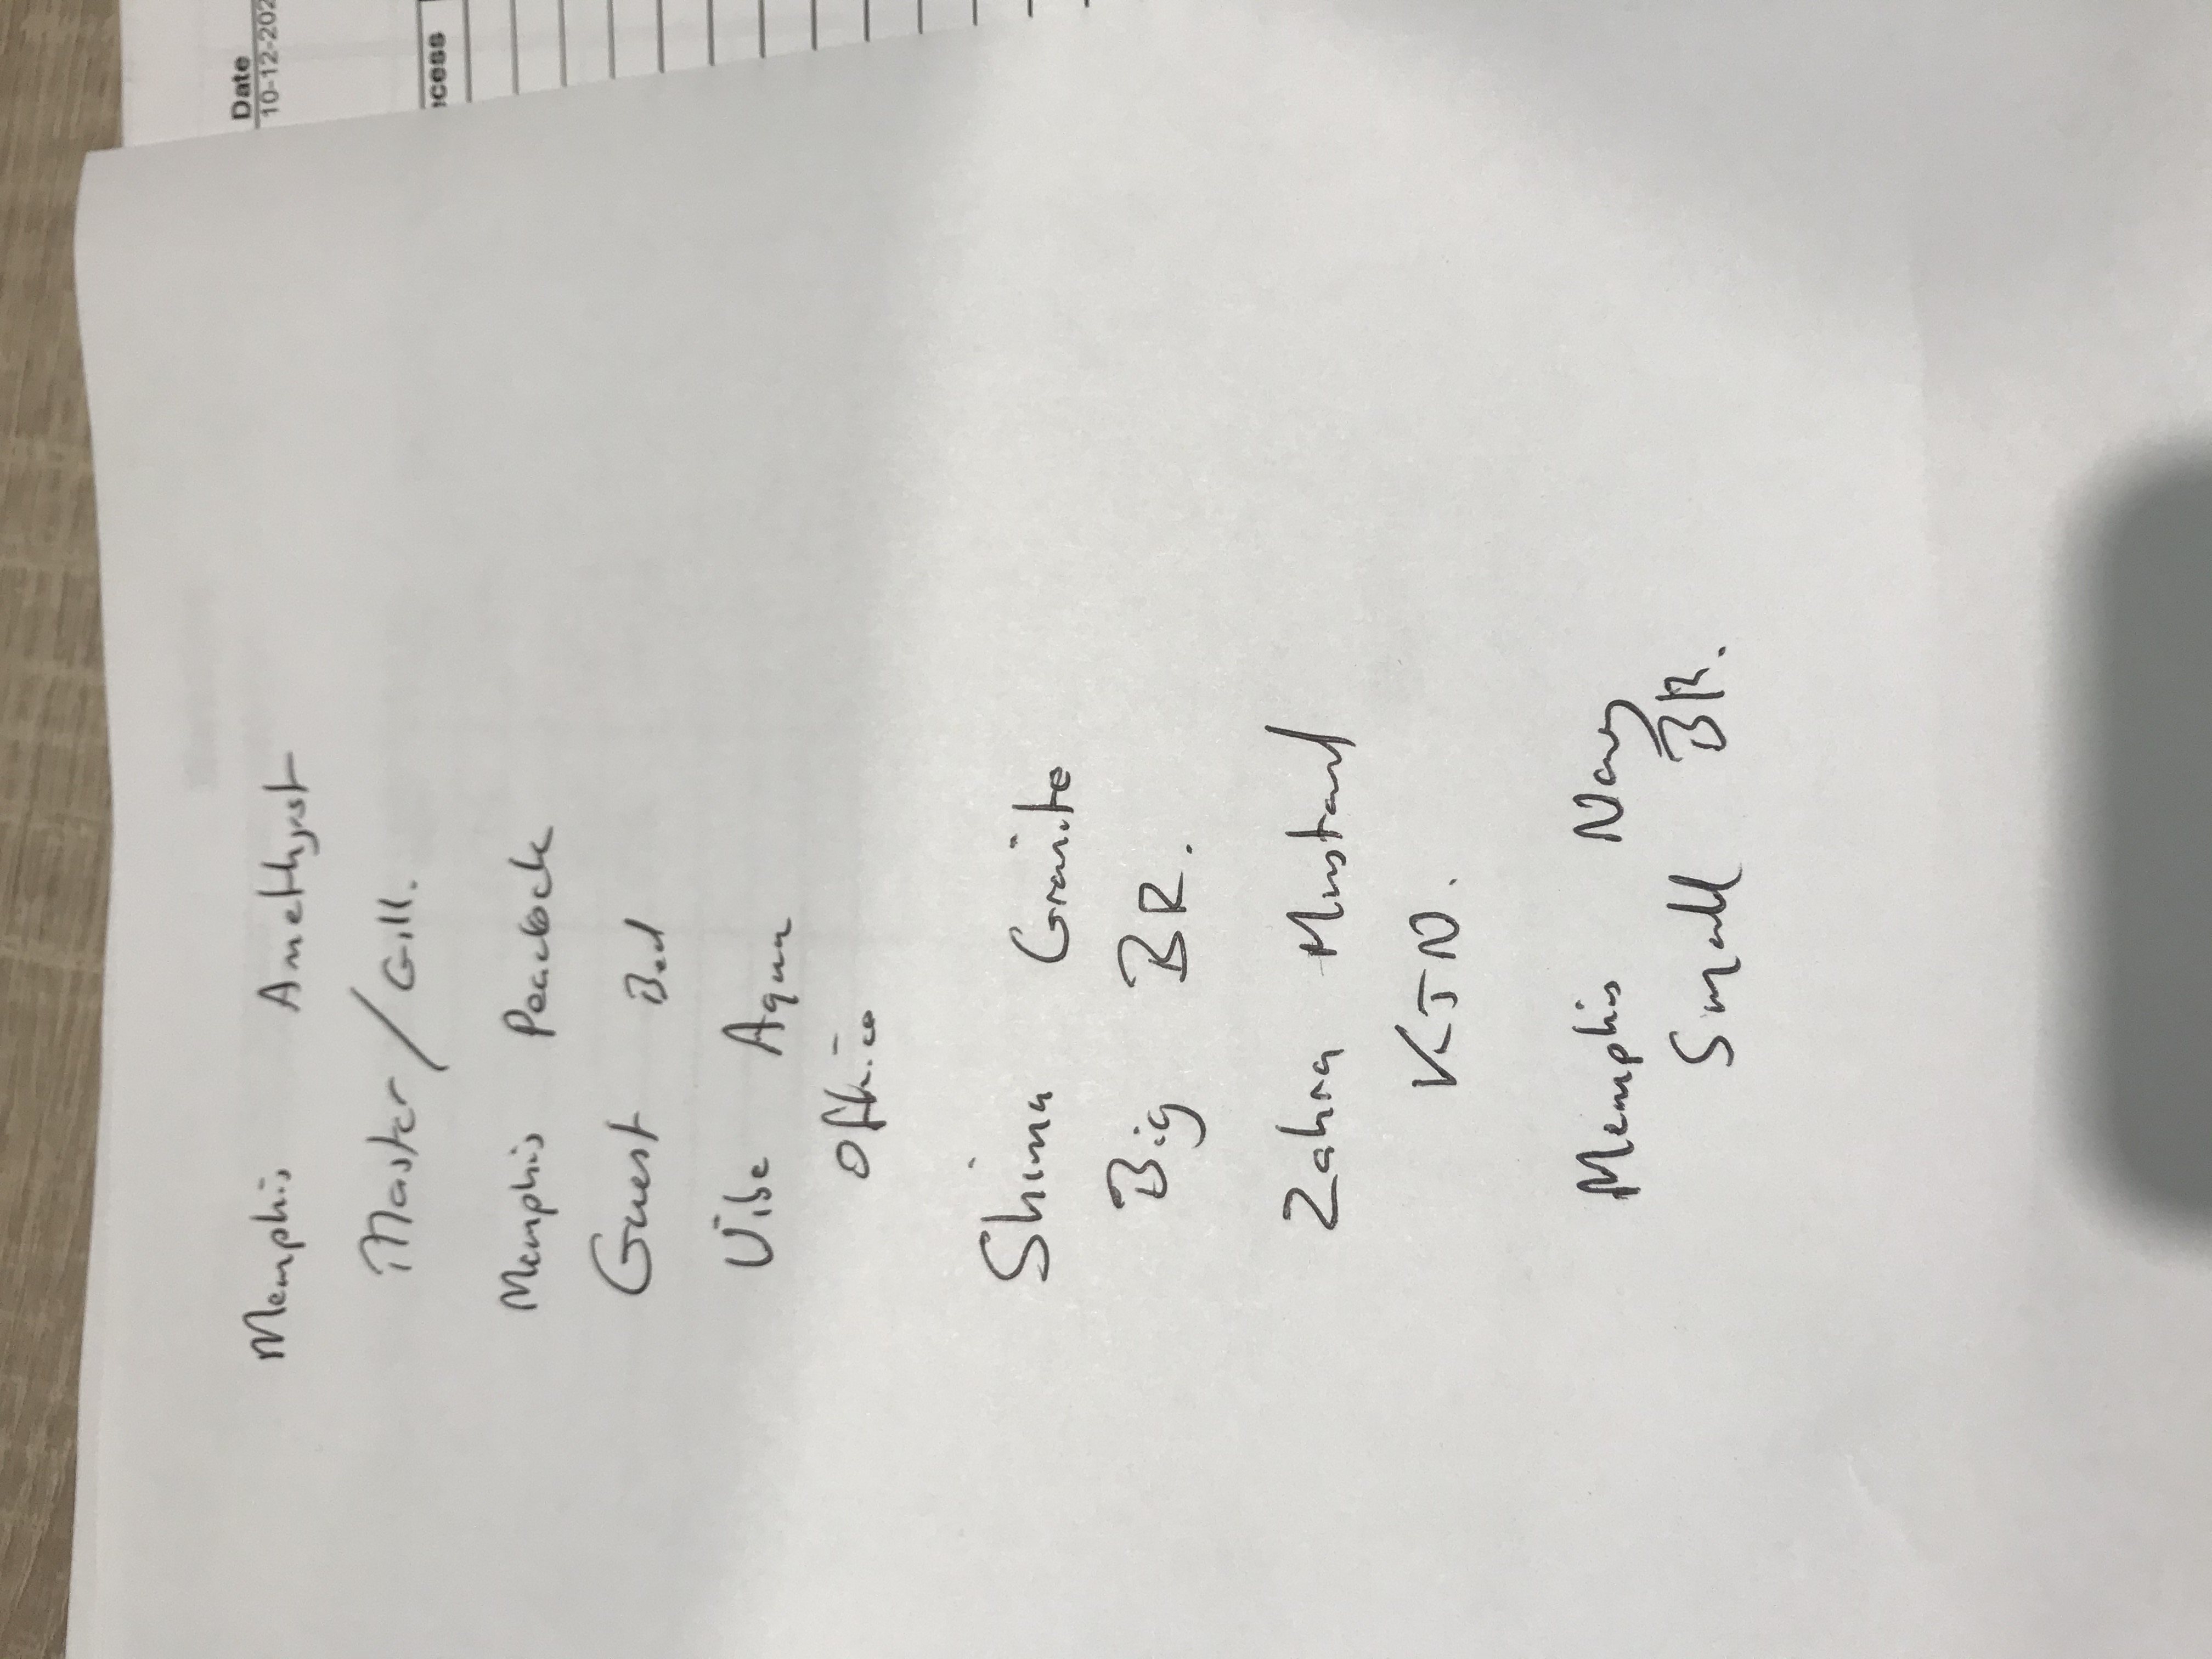 Date
10-12-202
ccess
Memphis Amethyst
Master / Gill.
Memphis Peacock
Guest Bed
Vibe Aqua
Office
Shima Granite
Big BR.
Zahra Mustard
KTN.
Memphis Navy
Small BR.